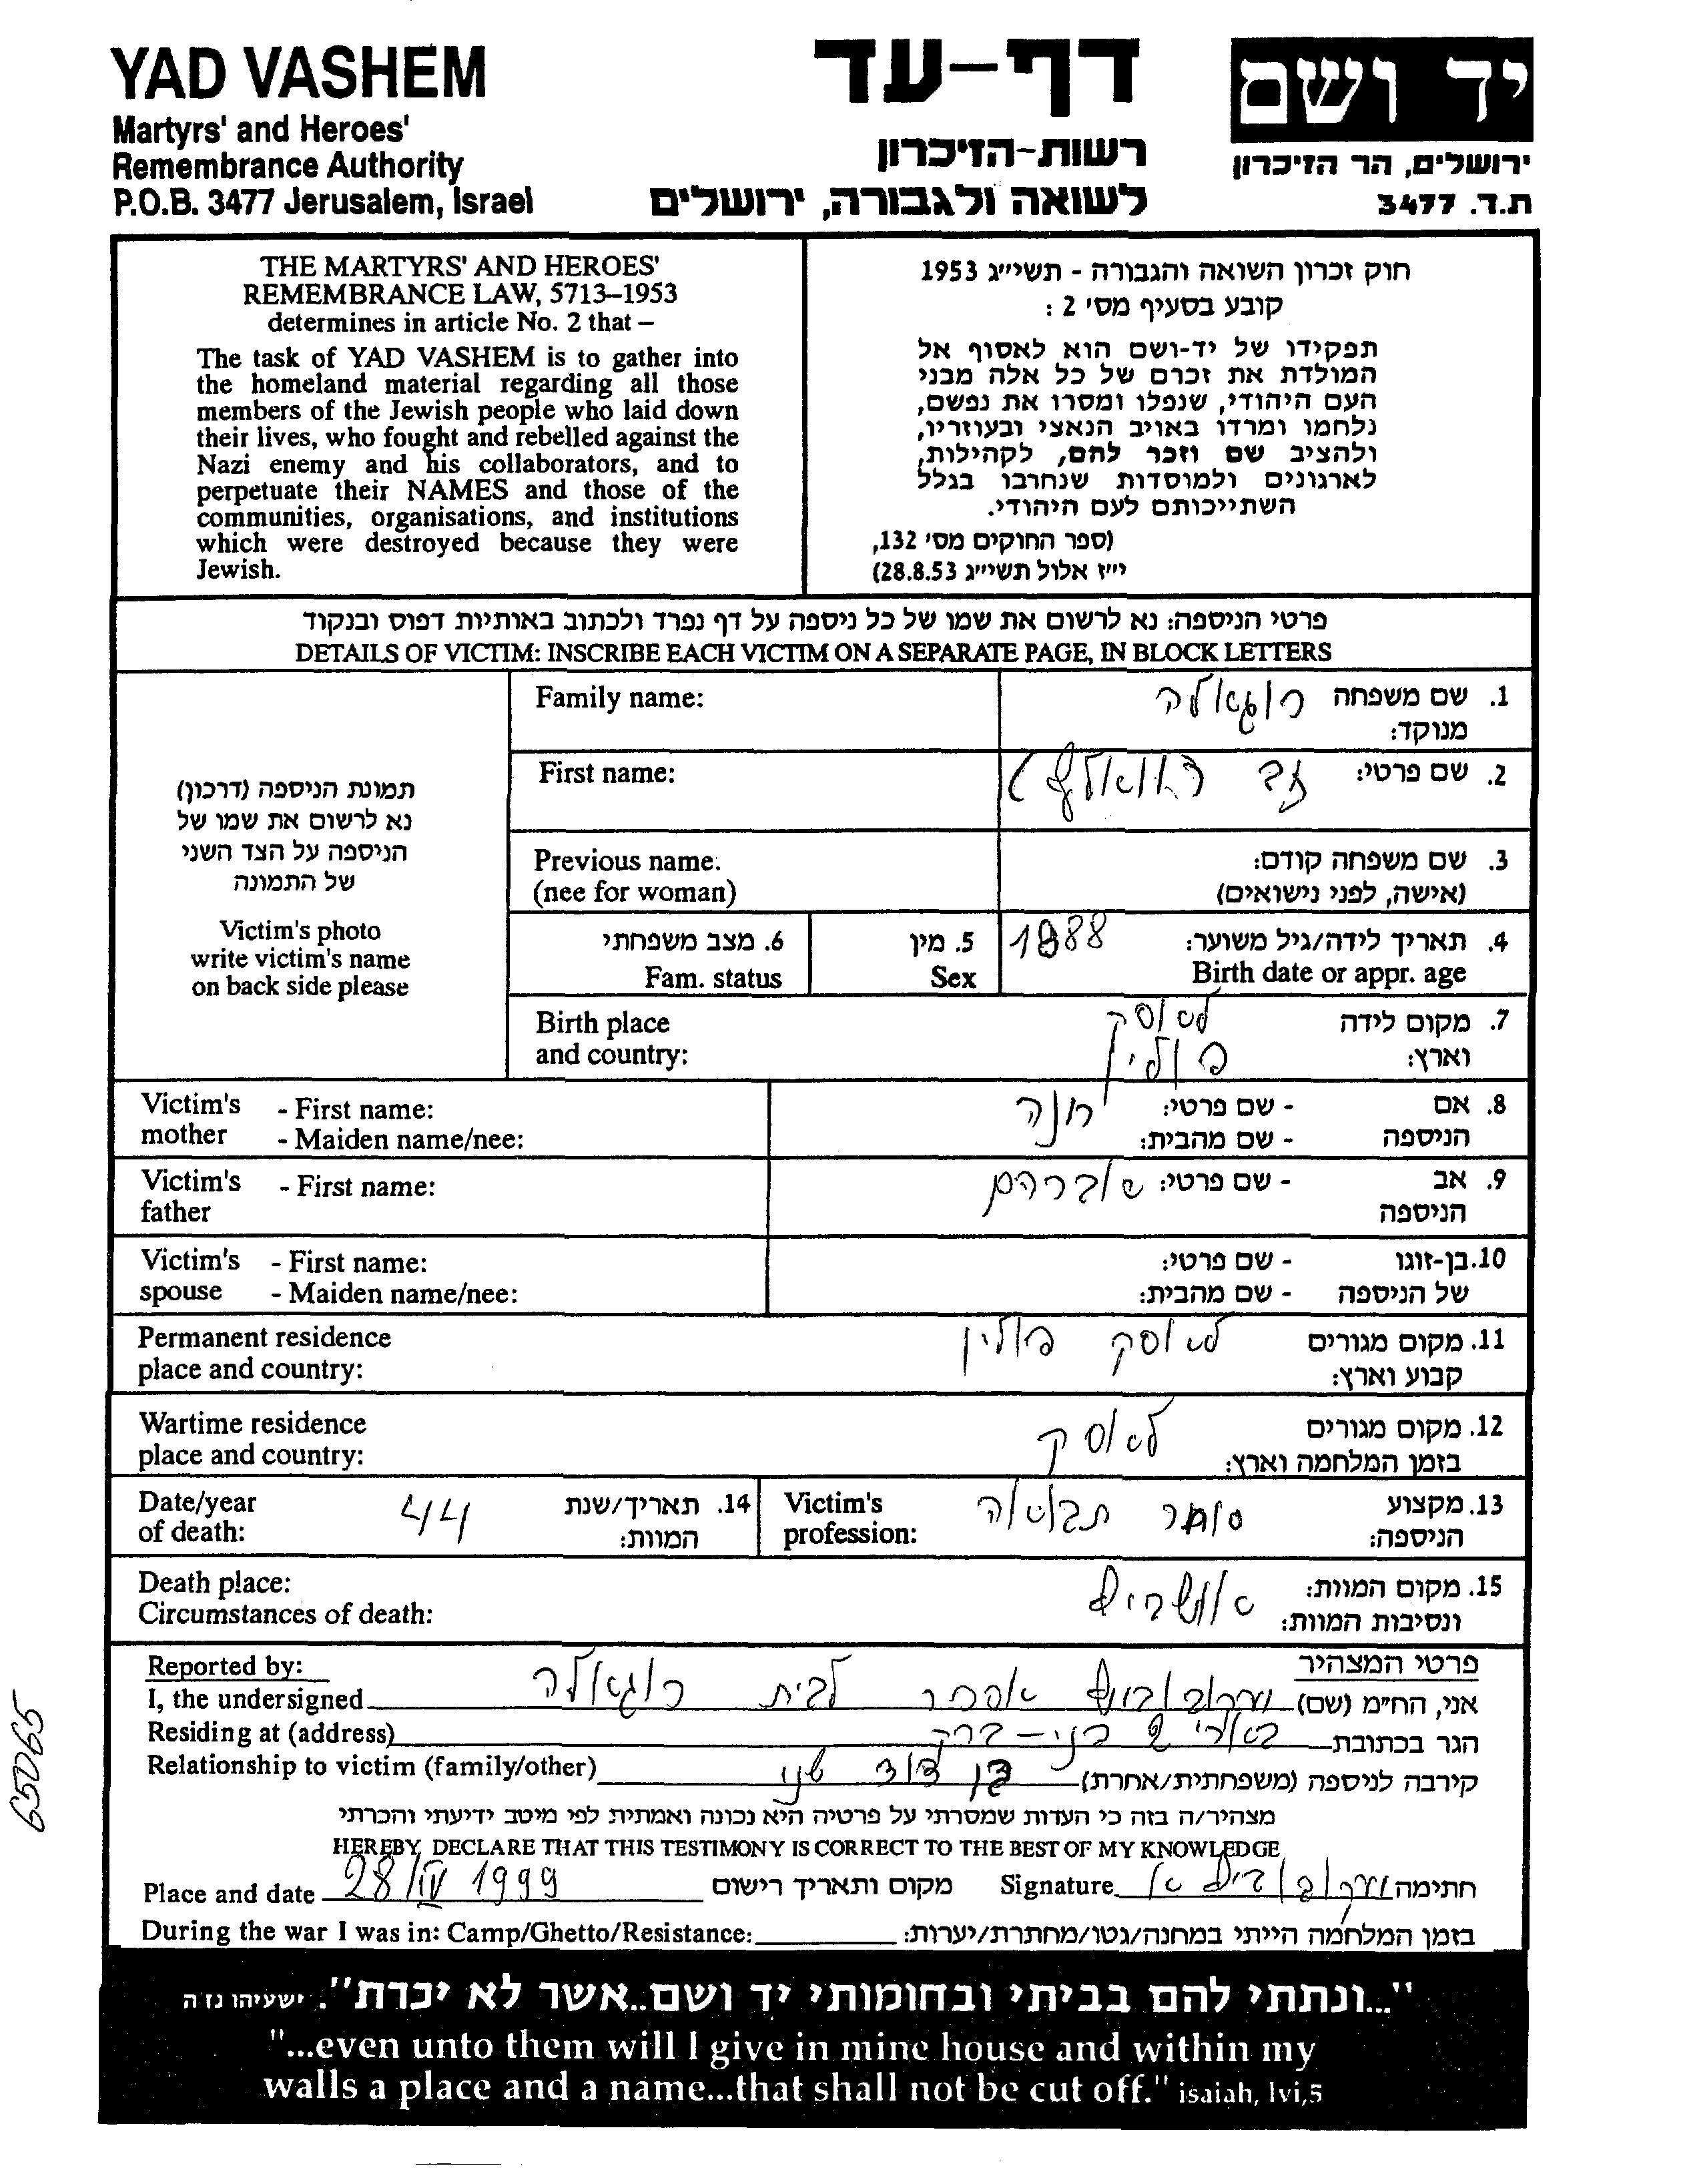 YAD VASHEM
Martyrs' and Heroes'
Remembrance Authority
P.O.B. 3477 Jerusalem, Israel
דף-עד
רשות-הזיכרון
לשואה ולגבורה, ירושלים
יד ושם
ירושלים, הר הזיכרון
ת.ד. 3477
THE MARTYRS' AND HEROES'
REMEMBRANCE LAW, 5713–1953
determines in article No. 2 that –
The task of YAD VASHEM is to gather into
the homeland material regarding all those
members of the Jewish people who laid down
their lives, who fought and rebelled against the
Nazi enemy and his collaborators, and to
perpetuate their NAMES and those of the
communities, organisations, and institutions
which were destroyed because they were
Jewish.
חוק זכרון השואה והגבורה - תשי״ג 1953
קובע בסעיף מס׳ 2 :
תפקידו של יד-ושם הוא לאסוף אל
המולדת את זכרם של כל אלה מבני
העם היהודי, שנפלו ומסרו את נפשם,
נלחמו ומרדו באויב הנאצי ובעוזריו,
ולהציב שם וזכר להם, לקהילות,
לארגונים ולמוסדות שנחרבו בגלל
השתייכותם לעם היהודי.
(ספר החוקים מס׳ 132,
י״ז אלול תשי״ג 28.8.53)
פרטי הניספה: נא לרשום את שמו של כל ניספה על דף נפרד ולכתוב באותיות דפוס ובנקוד
DETAILS OF VICTIM: INSCRIBE EACH VICTIM ON A SEPARATE PAGE, IN BLOCK LETTERS
תמונת הניספה (דרכון)
נא לרשום את שמו של
הניספה על הצד השני
של התמונה
Victim's photo
write victim's name
on back side please
Family name:
1. שם משפחה
מנוקד:
First name:
2. שם פרטי:
Previous name.
(nee for woman)
3. שם משפחה קודם:
(אישה, לפני נישואים)
6. מצב משפחתי
Fam. status
5. מין
Sex
4. תאריך לידה/גיל משוער: 1888
Birth date or appr. age
Birth place
and country:
7. מקום לידה
וארץ: פולין
Victim's mother - First name:
- Maiden name/nee:
8. אם הניספה - שם פרטי: חנה
- שם מהבית:
Victim's father - First name:
9. אב הניספה - שם פרטי: אברהם
Victim's spouse - First name:
- Maiden name/nee:
10. בן-זוגו של הניספה - שם פרטי:
- שם מהבית:
Permanent residence
place and country:
11. מקום מגורים
קבוע וארץ: פולין
Wartime residence
place and country:
12. מקום מגורים
בזמן המלחמה וארץ:
Date/year
of death:
14. תאריך/שנת
המוות: 44
Victim's
profession:
13. מקצוע
הניספה: סוחר תבואה
Death place:
Circumstances of death:
15. מקום המוות:
ונסיבות המוות: אושוויץ
Reported by:
פרטי המצהיר
I, the undersigned
אני, הח״מ (שם) אסתר לבית
Residing at (address)
הגר בכתובת בני-ברק
Relationship to victim (family/other)
קירבה לניספה (משפחתית/אחרת) בן דוד שני
מצהיר/ה בזה כי העדות שמסרתי על פרטיה היא נכונה ואמתית לפי מיטב ידיעתי והכרתי
HEREBY, DECLARE THAT THIS TESTIMONY IS CORRECT TO THE BEST OF MY KNOWLEDGE
Place and date 28/IV 1999 מקום ותאריך רישום Signature חתימה
During the war I was in: Camp/Ghetto/Resistance: בזמן המלחמה הייתי במחנה/גטו/מחתרת/יערות:
"...ונתתי להם בביתי ובחומותי יד ושם..אשר לא יכרת". ישעיהו נז ה
"...even unto them will I give in mine house and within my
walls a place and a name...that shall not be cut off." isaiah, lvi,5
65065